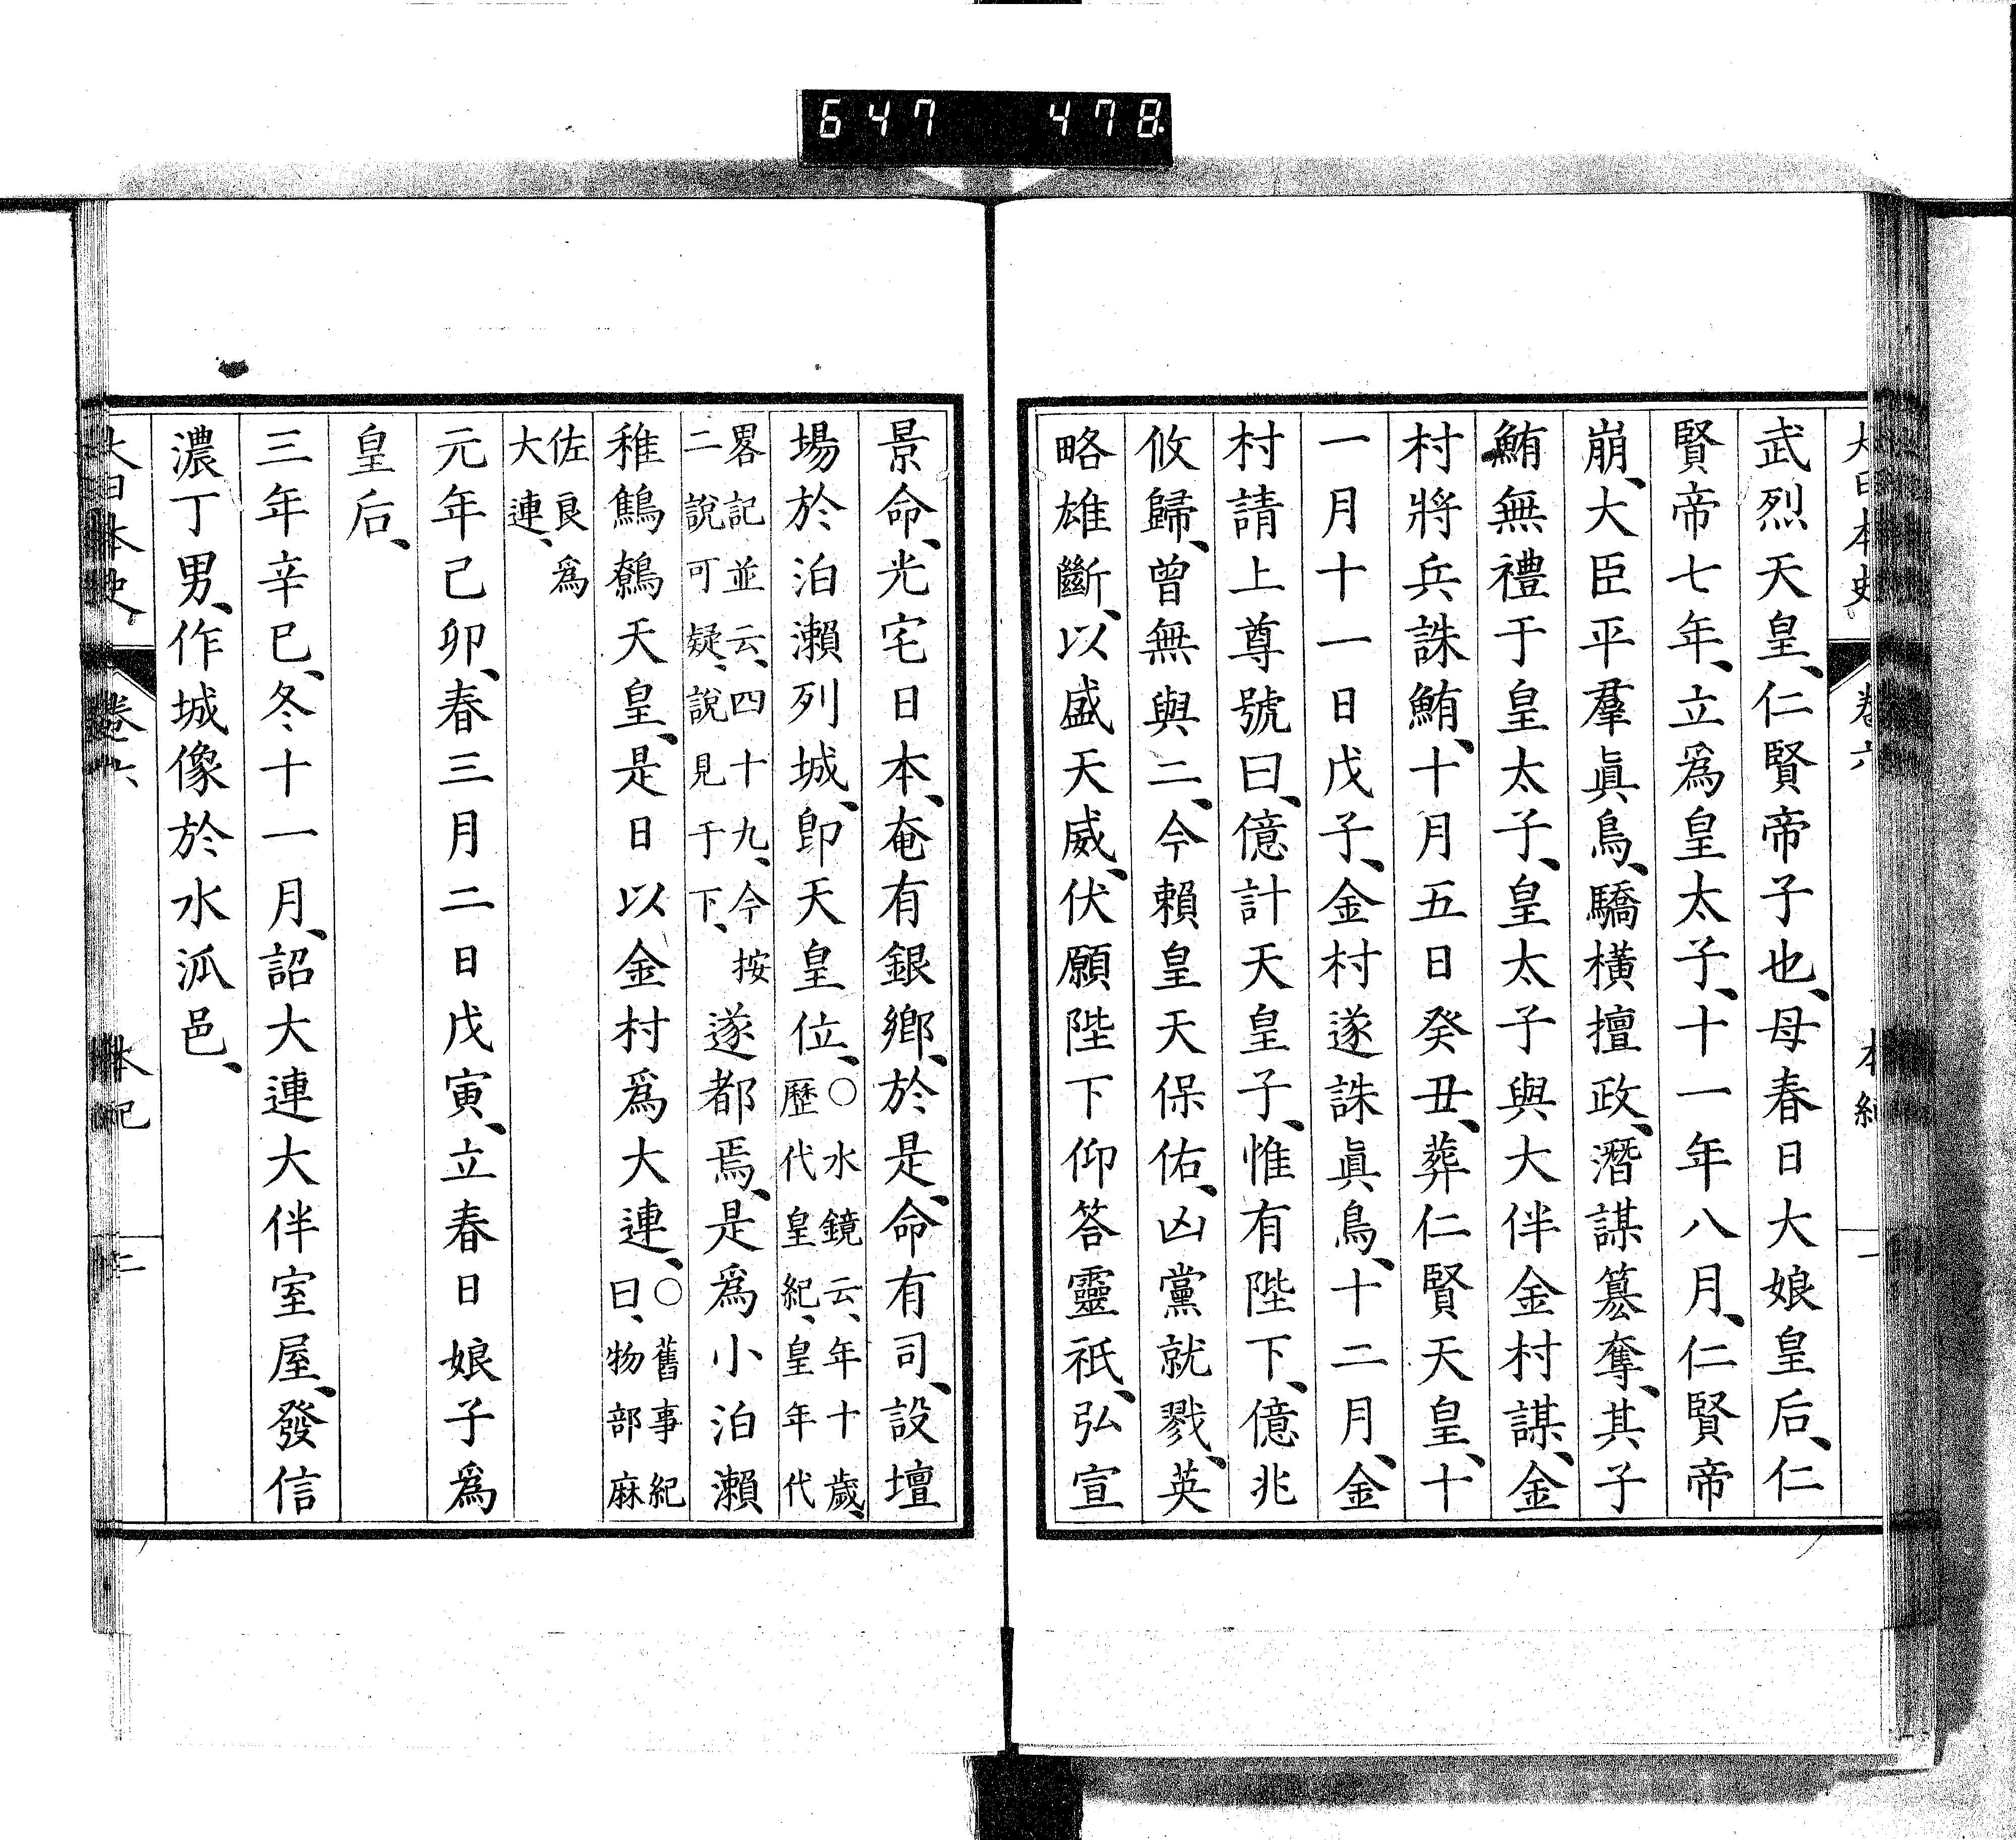 647 478.
大日本史 卷六 本紀 一
武烈天皇、仁賢帝子也、母春日大娘皇后、仁
賢帝七年、立爲皇太子、十一年八月、仁賢帝
崩、大臣平羣眞鳥、驕橫擅政、潛謀簒奪、其子
鮪無禮于皇太子、皇太子與大伴金村謀、金
村將兵誅鮪、十月五日癸丑、葬仁賢天皇、十
一月十一日戊子、金村遂誅眞鳥、十二月、金
村請上尊號曰、億計天皇子、惟有陛下、億兆
攸歸、曾無與二、今賴皇天保佑、凶黨就戮、英
略雄斷、以盛天威、伏願陛下仰答靈祇、弘宣
景命、光宅日本、奄有銀鄕、於是、命有司、設壇
場於泊瀨列城、卽天皇位、○水鏡云、年十歲、
歷代皇紀、皇年代
畧記並云、四十九、今按
二說可疑、說見于下、
遂都焉、是爲小泊瀨
稚鷦鷯天皇、是日以金村爲大連、○舊事紀
曰、物部麻
佐良爲
大連、
元年己卯、春三月二日戊寅、立春日娘子爲
皇后、
三年辛巳、冬十一月、詔大連大伴室屋、發信
濃丁男、作城像於水派邑、
大日本史 卷六 本紀 二